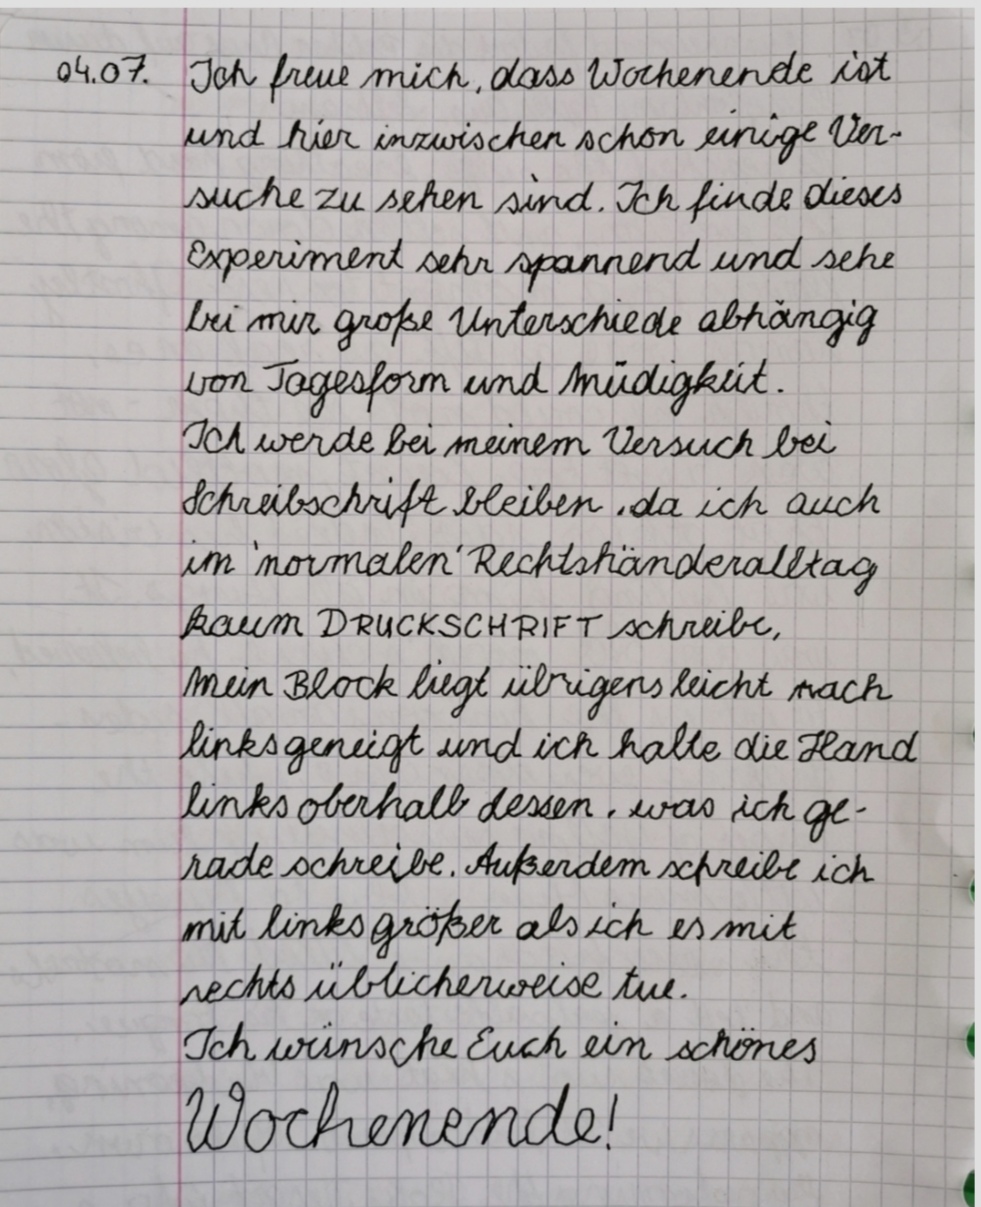 04.07. Ich freue mich, dass Wochenende ist
und hier inzwischen schon einige Ver-
suche zu sehen sind. Ich finde dieses
Experiment sehr spannend und sehe
bei mir große Unterschiede abhängig
von Tagesform und Müdigkeit.
Ich werde bei meinem Versuch bei
Schreibschrift bleiben, da ich auch
im 'normalen' Rechtshänderalltag
kaum DRUCKSCHRIFT schreibe,
Mein Block liegt übrigens leicht nach
links geneigt und ich halte die Hand
links oberhalb dessen, was ich ge-
rade schreibe. Außerdem schreibe ich
mit links größer als ich es mit
rechts üblicherweise tue.
Ich wünsche Euch ein schönes
Wochenende!